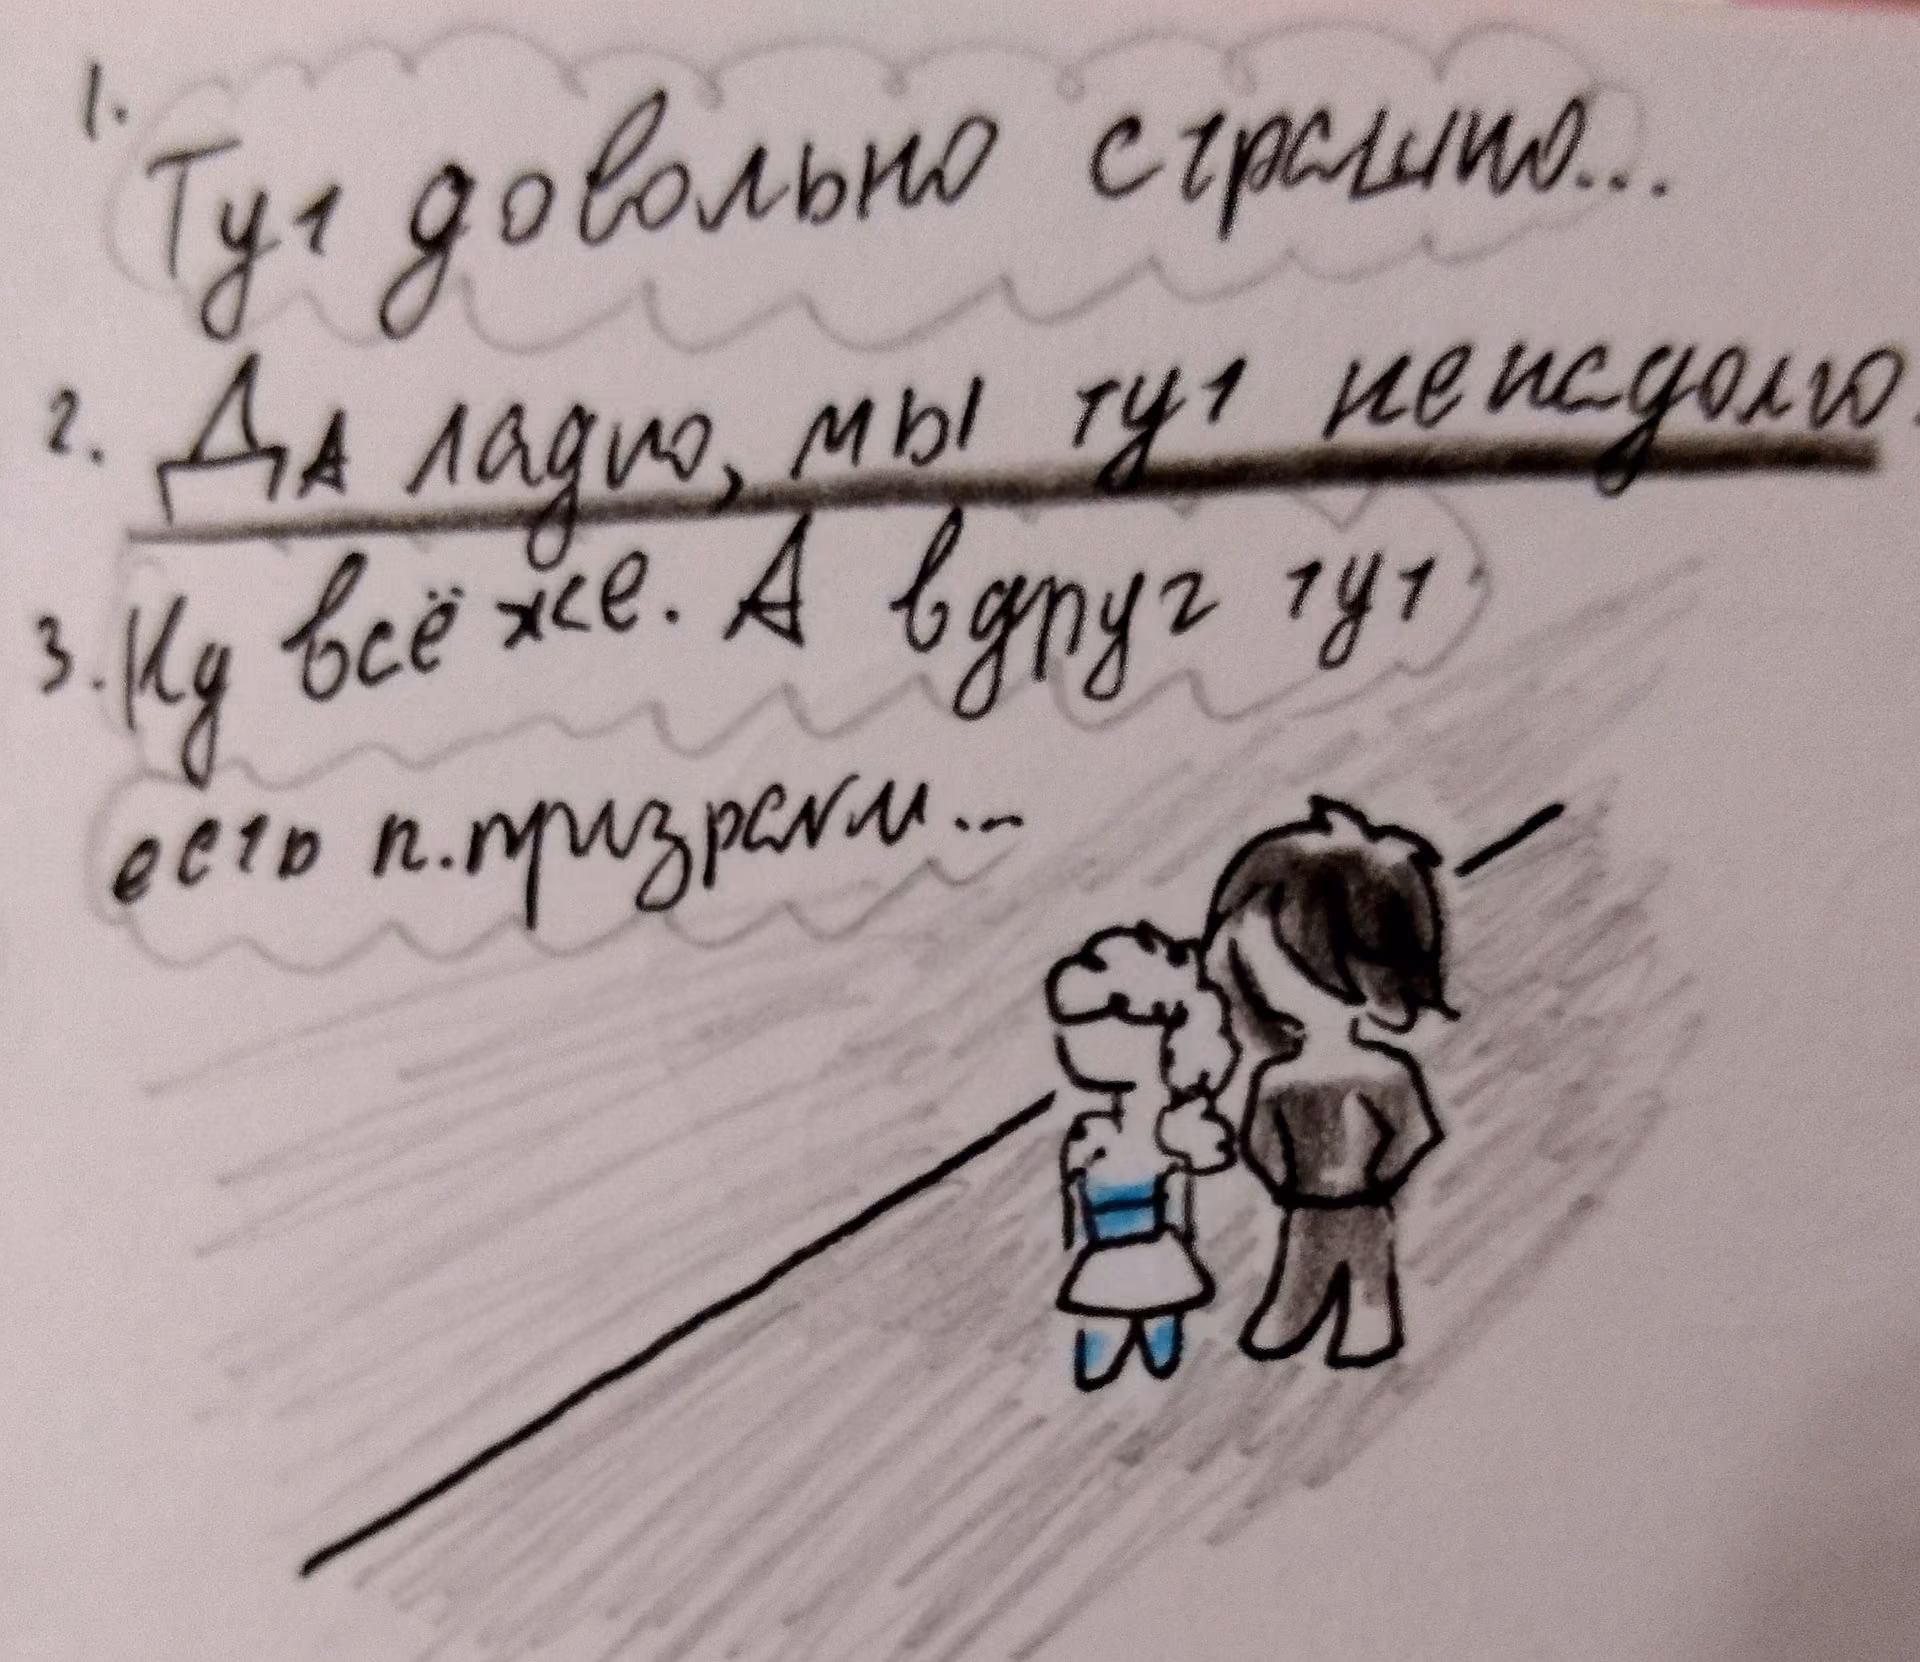 1. Тут довольно страшно...
2. Да ладно, мы тут ненадолго.
3. Ну всё же. А вдруг тут
есть п.призраки...